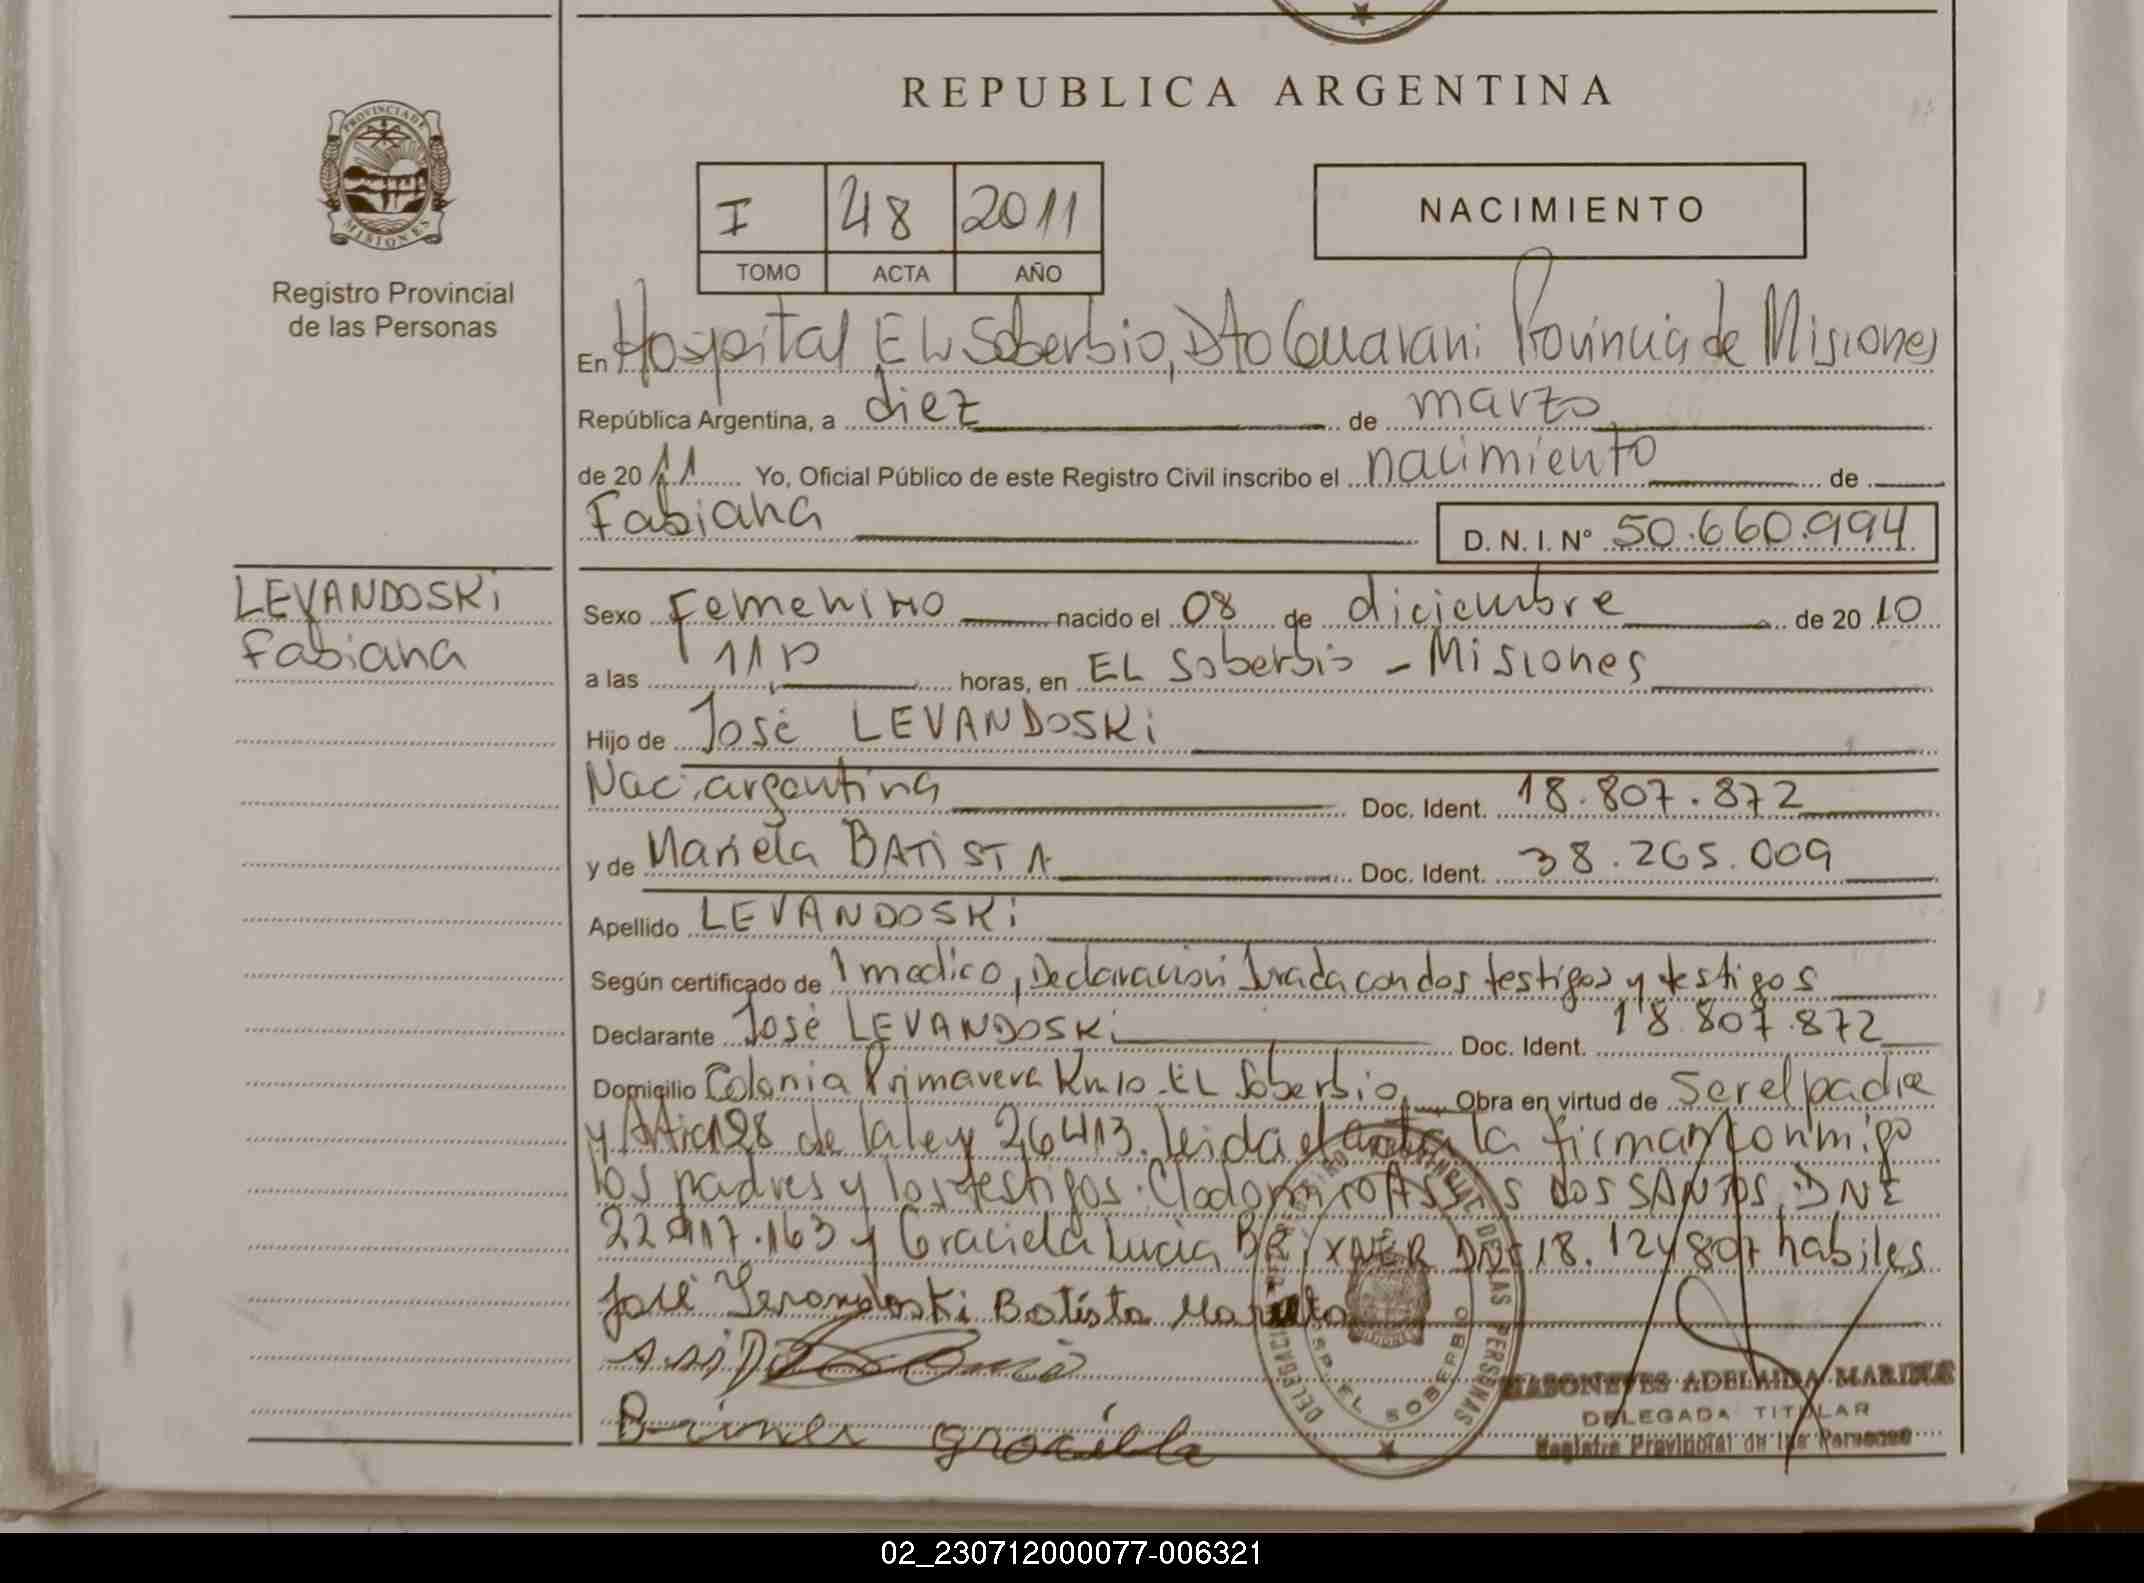 REPUBLICA ARGENTINA
PROVINCIA DE
MISIONES
Registro Provincial
de las Personas
I 48 2011
TOMO ACTA AÑO
NACIMIENTO
En Hospital EL Soberbio, Dto Guarani Provincia de Misiones
República Argentina, a diez de marzo
de 2011 Yo, Oficial Público de este Registro Civil inscribo el nacimiento de
Fabiana D. N. I. N° 50.660.994
LEVANDOSKi
Fabiana
Sexo Femenino nacido el 08 de diciembre de 2010
a las 11 horas, en EL Soberbio - Misiones
Hijo de José LEVANDOSKi
Nac. argentina Doc. Ident. 18.807.872
y de Mariela BATiSTA Doc. Ident. 38.265.009
Apellido LEVANDOSKi
Según certificado de 1 medico, Declaracion Jrada con dos testigos y testigos
Declarante José LEVANDOSKi Doc. Ident. 18.807.872
Domicilio Colonia Primavera Km 10 - EL Soberbio Obra en virtud de ser el padre
y Artic 28 de la ley 26413. leida el acta la firman conmigo
los padres y los testigos: Clodomiro ASSIS DOS SANTOS, DNI
22.917.163 y Graciela Lucia BRiXNER DNI 18.124807 habiles
José Levandoski Batista Mariela
Briner graciela
DELEGACION EL SOBERBIO
DE LAS PERSONAS
MASONEVES ADELAIDA MARINE
DELEGADA TITULAR
Registro Provincial de las Personas
02_230712000077-006321